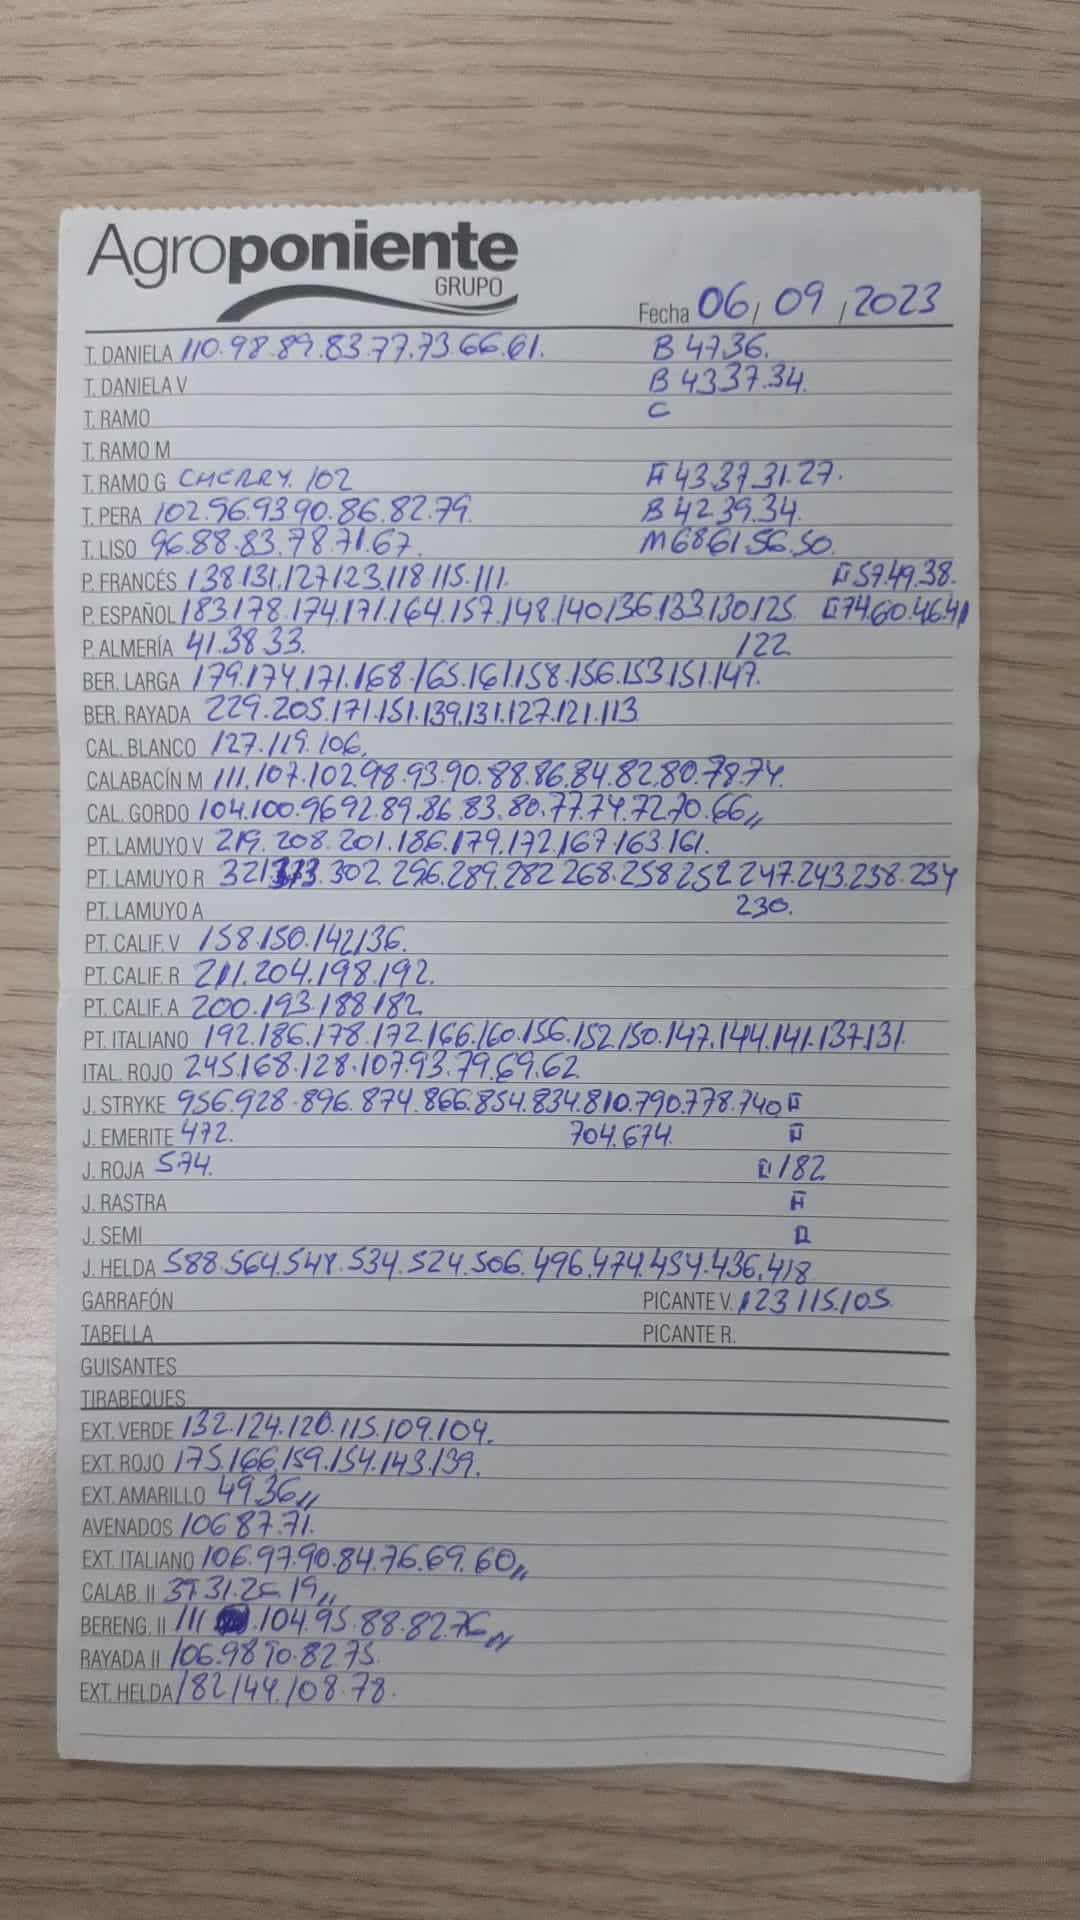 Agroponiente
GRUPO
Fecha 06/09/2023
T. DANIELA 110.98.89.83.77.73.66.61. B 47.36.
T. DANIELA V B 43.37.34.
T. RAMO C
T. RAMO M
T. RAMO G CHERRY. 102 A 43.37.31.27.
T. PERA 102.96.93.90.86.82.79. B 42.39.34.
T. LISO 96.88.83.78.71.67. M 68.61.56.50.
P. FRANCÉS 138.131.127.123.118.115.111. 57.49.38.
P. ESPAÑOL 183.178.174.171.164.157.148.140.136.133.130.125 74.60.46.41
P. ALMERÍA 41.38.33. 122
BER. LARGA 179.174.171.168.165.161.158.156.153.151.147.
BER. RAYADA 229.205.171.151.139.131.127.121.113
CAL. BLANCO 127.119.106.
CALABACÍN M 111.107.102.98.93.90.88.86.84.82.80.78.74.
CAL. GORDO 104.100.96.92.89.86.83.80.77.74.72.70.66,,
PT. LAMUYO V 219.208.201.186.179.172.167.163.161.
PT. LAMUYO R 321.313.302.296.289.282.268.258.252.247.243.238.234
PT. LAMUYO A 230.
PT. CALIF. V 158.150.142.136.
PT. CALIF. R 211.204.198.192.
PT. CALIF. A 200.193.188.182
PT. ITALIANO 192.186.178.172.166.160.156.152.150.147.144.141.137.131.
ITAL. ROJO 245.168.128.107.93.79.69.62
J. STRYKE 956.928.896.874.866.854.834.810.790.778.740
J. EMERITE 472. 704.674.
J. ROJA 574. 182
J. RASTRA
J. SEMI
J. HELDA 588.564.548.534.524.506.496.474.454.436.418
GARRAFÓN PICANTE V. 123.115.105
TABELLA PICANTE R.
GUISANTES
TIRABEQUES
EXT. VERDE 132.124.120.115.109.104.
EXT. ROJO 175.166.159.154.143.139.
EXT. AMARILLO 49.36,,
AVENADOS 106.87.71.
EXT. ITALIANO 106.97.90.84.76.69.60,,
CALAB. II 37.31.26.19,,
BERENG. II 111 .104.95.88.82.76,,
RAYADA II 106.98.90.82.75.
EXT. HELDA 182.144.108.78.